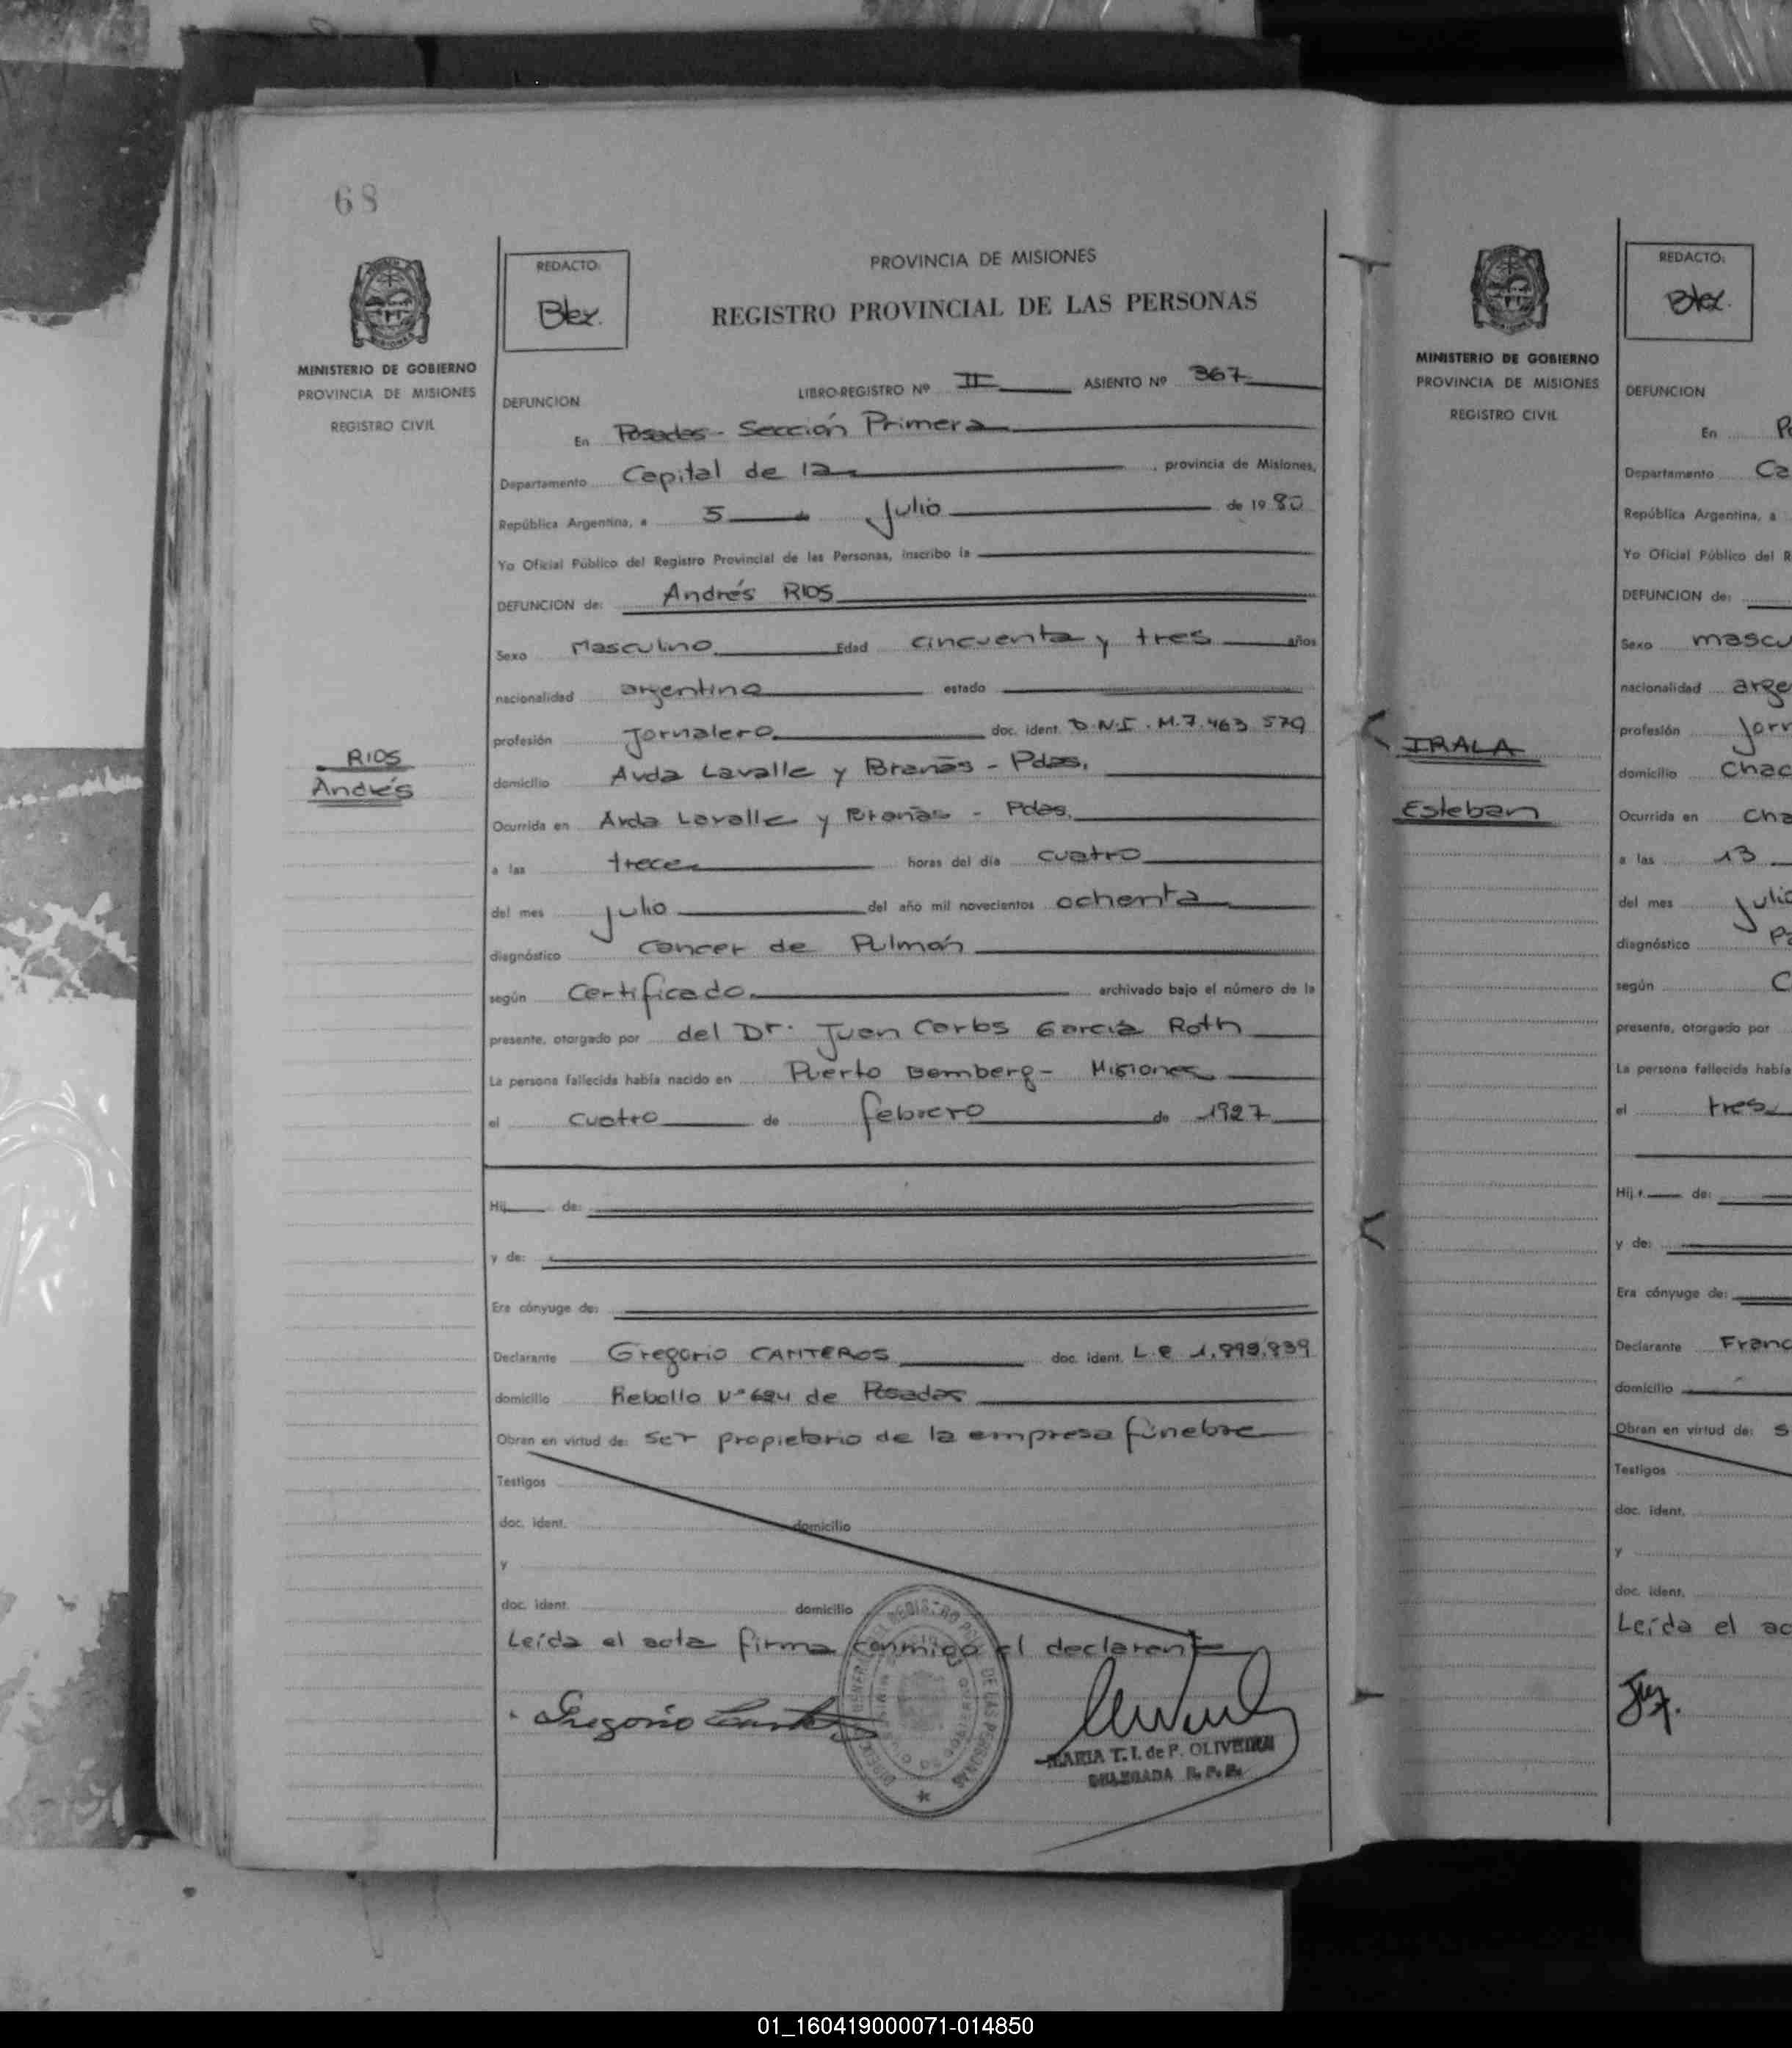 68
MINISTERIO DE GOBIERNO
PROVINCIA DE MISIONES
REGISTRO CIVIL
RIOS
Andrés
REDACTO:
Blex.
PROVINCIA DE MISIONES
REGISTRO PROVINCIAL DE LAS PERSONAS
LIBRO-REGISTRO Nº II ASIENTO Nº 367
DEFUNCION
En Posadas - Sección Primera
Departamento Capital de la , provincia de Misiones,
República Argentina, a 5 de julio de 1980
Yo Oficial Público del Registro Provincial de las Personas, inscribo la
DEFUNCION de: Andrés RIOS
Sexo Masculino Edad cincuenta y tres años
nacionalidad argentina estado
profesión jornalero doc. ident. D.N.I. M.7.463.579
domicilio Avda Lavalle y Brañas - Pdas.
Ocurrida en Avda Lavalle y Brañas - Pdas.
a las trece horas del día cuatro
del mes julio del año mil novecientos ochenta
diagnóstico cancer de Pulmón
según Certificado archivado bajo el número de la
presente, otorgado por del Dr. Juan Carlos García Roth
La persona fallecida había nacido en Puerto Bemberg - Misiones
el cuatro de febrero de 1927
Hij de:
y de:
Era cónyuge de:
Declarante Gregorio CANTEROS doc. ident. L.E 1.899.839
domicilio Rebollo Nº 684 de Posadas
Obran en virtud de: ser propietario de la empresa fúnebre
Testigos
doc. ident. domicilio
y
doc. ident. domicilio
Leída el acta firma conmigo el declarante
Gregorio
MARIA T. I. de P. OLIVEIRA
DELEGADA R. P. P.
MINISTERIO DE GOBIERNO
PROVINCIA DE MISIONES
REGISTRO CIVIL
IRALA
Esteban
REDACTO:
Blex.
DEFUNCION
En
Departamento Ca
República Argentina, a
Yo Oficial Público del R
DEFUNCION de:
Sexo mascu
nacionalidad arge
profesión jorr
domicilio Chac
Ocurrida en cha
a las 13
del mes julio
diagnóstico
según C
presente, otorgado por
La persona fallecida había
el tres
Hij de:
y de:
Era cónyuge de:
Declarante Franc
domicilio
Obran en virtud de: s
Testigos
doc. ident.
y
doc. ident.
Leída el ac
01_160419000071-014850